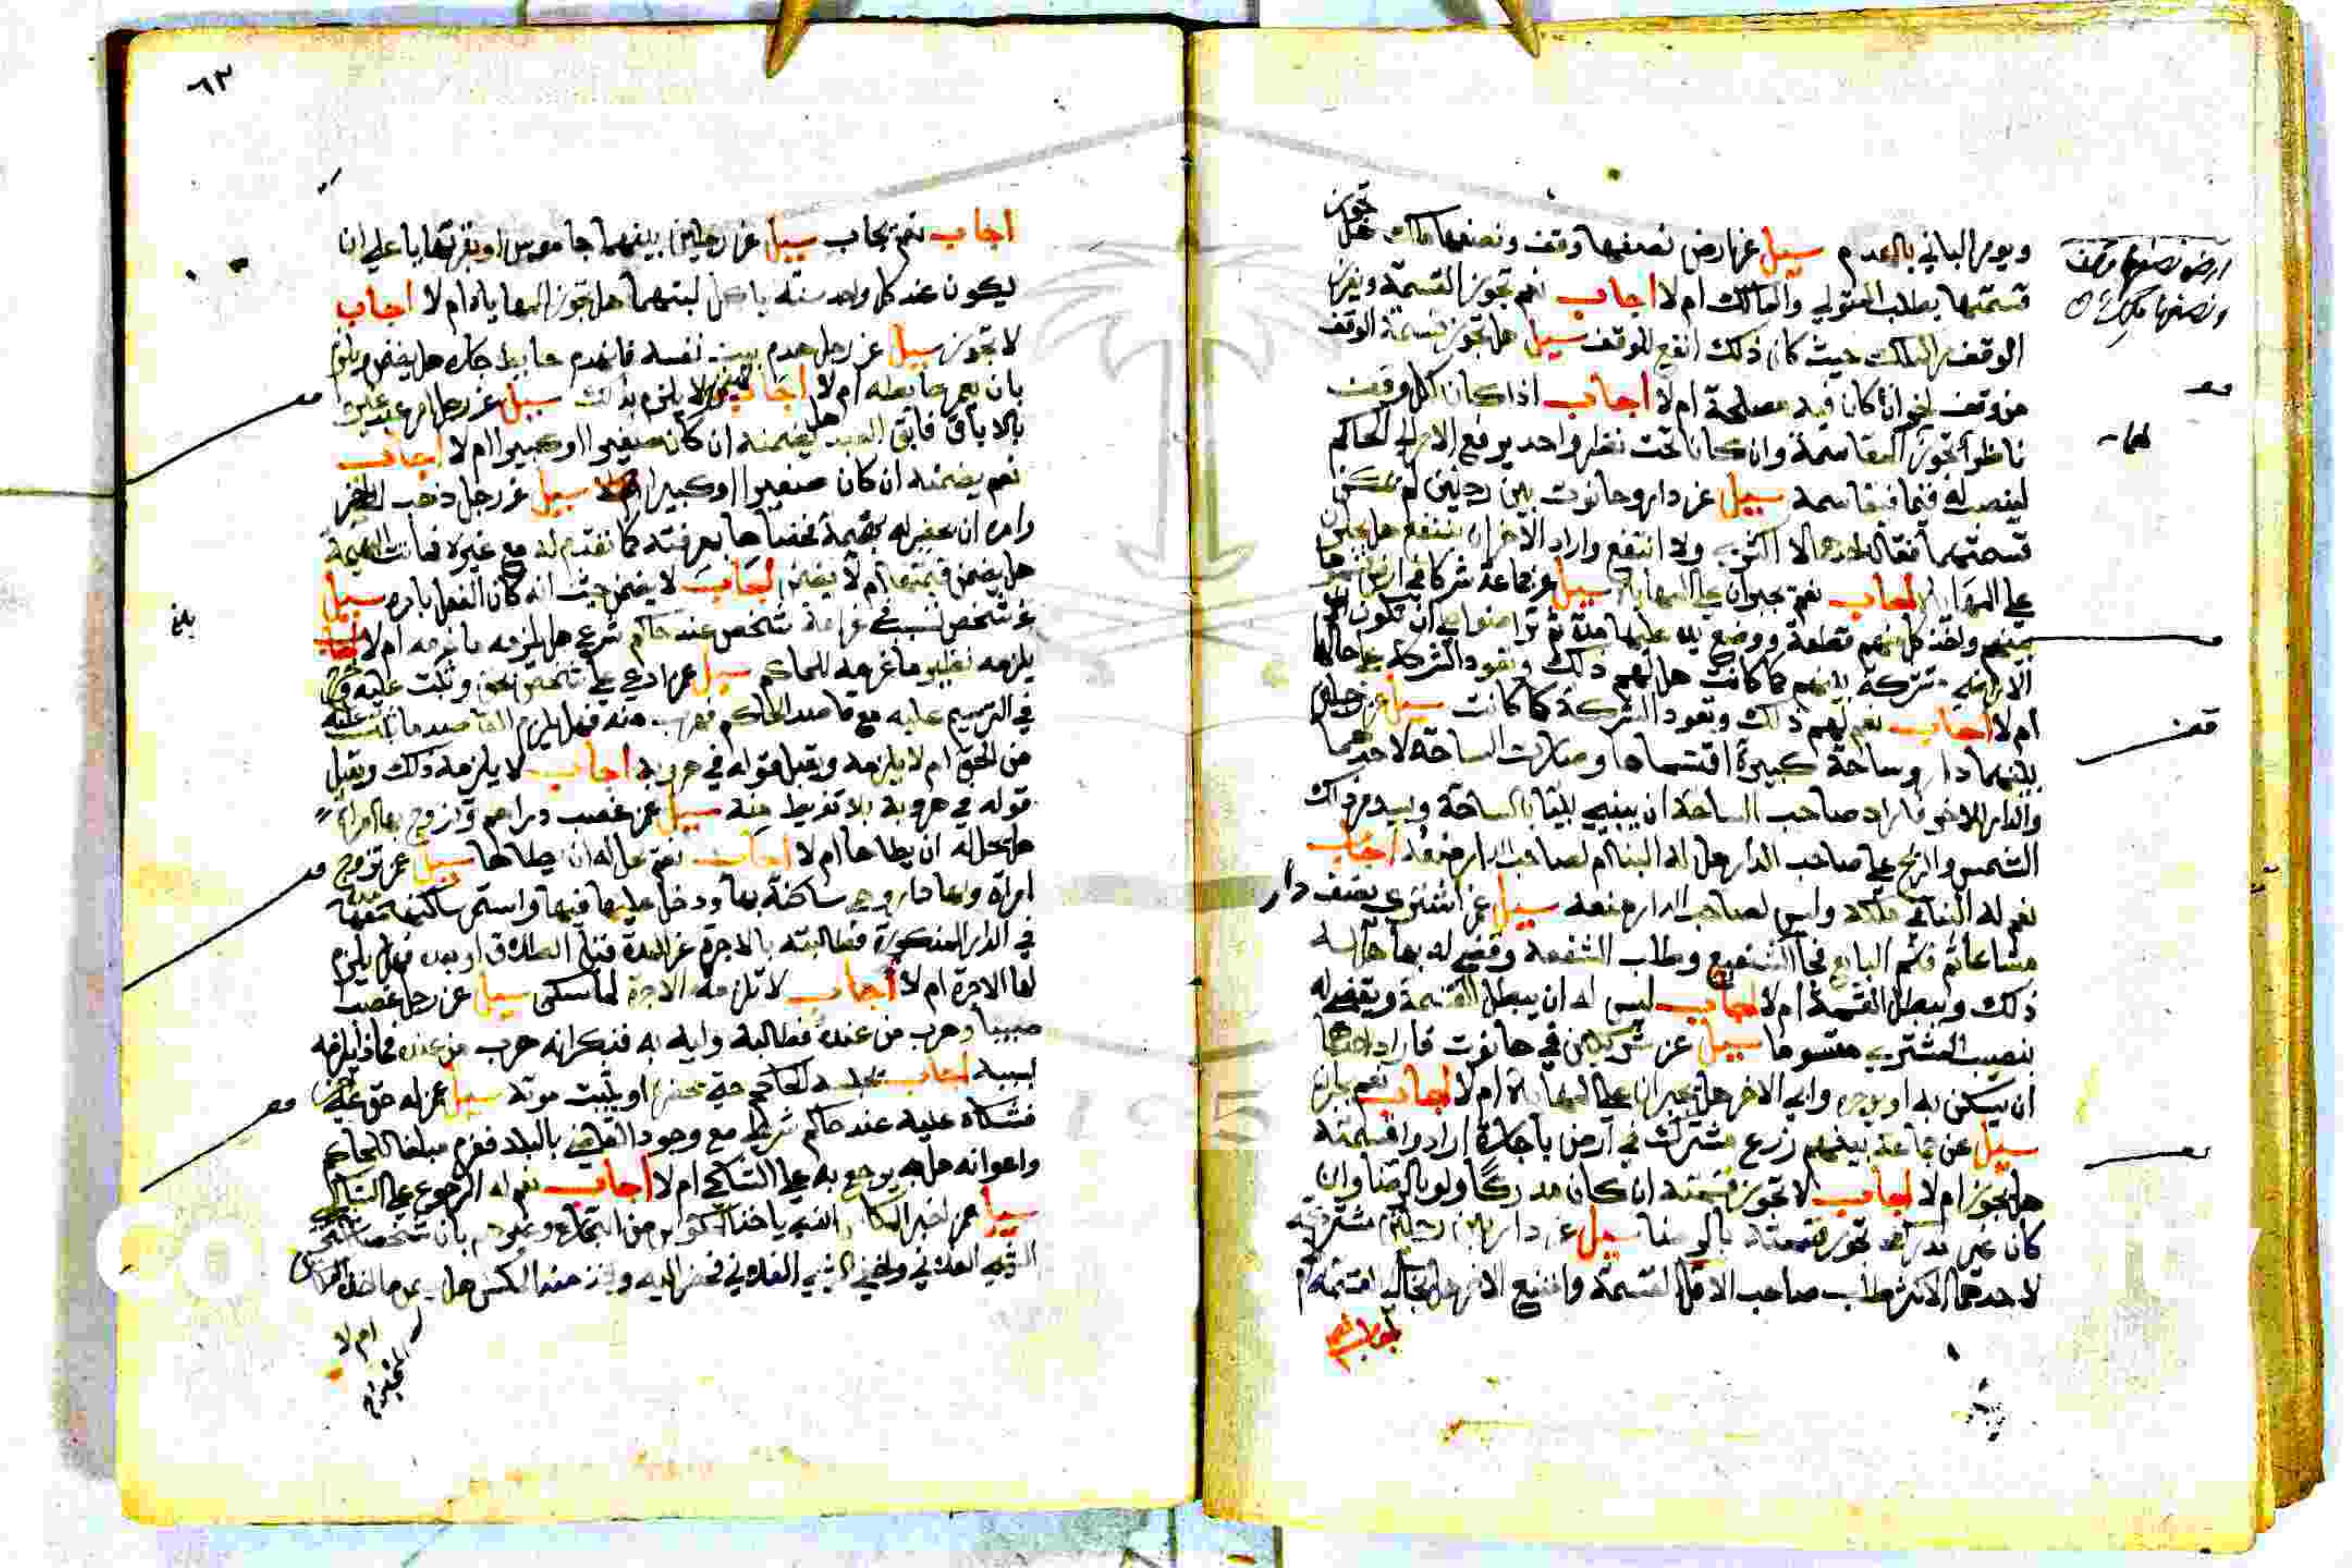 ويومر الباني بالهدم سيل عن ارض نصفها وقف ونصفها ملك هل تجوز
قسمتها بطلب المتولي والمالك ام لا اجاب نعم تجوز القسمة ويفرز
الوقف من الملك حيث كان ذلك انفع للوقف سيل هل تجوز قسمة الوقف
من وقف اخر ان كان فيه مصلحة ام لا اجاب اذا كان لكل وقف
ناظرا تجوز المقاسمة وان كانا تحت نظر واحد يرفع الامر الى الحاكم
لينصب له قيما فيقاسمه سيل عن دار وحانوت بين رجلين لم تمكن
قسمتهما فقال احدهما لا اكري ولا انتفع واراد الاخر ان ينتفع هل يجبران
على المهاياة اجاب نعم يجبران على المهاياة سيل عن جماعة شركا في ارض
بينهم واخذ كل منهم قطعة ووضع يده عليها مدة ثم تراضوا على ان تكون
الاراضي مشتركة بينهم كما كانت هل لهم ذلك وتعود الشركة على حالها
ام لا اجاب نعم لهم ذلك وتعود الشركة كما كانت سيل عن رجلين
بينهما دار وساحة كبيرة اقتسماها وصارت الساحة لاحدهما
والدار للاخر فاراد صاحب الساحة ان يبني بيتا بالساحة ويسد
الشمس والريح على صاحب الدار هل له البنا ام لصاحب الدار منعه اجاب
نعم له البنا في ملكه وليس لصاحب الدار منعه سيل عمن اشترى نصف دار
مشاعا ثم قاسم البايع فجا الشفيع وطلب الشفعة وقضي له بها هل له
ذلك ويبطل القسمة ام لا اجاب ليس له ان يبطل القسمة ويقضى له
بنصيب المشتري مقسوما سيل عن شريكين في حانوت فاراد احدهما
ان يسكن به او يوجره وابى الاخر هل يجبران على المهاياة ام لا اجاب نعم يجبران
سيل عن جماعة بينهم زرع مشترك في ارض باجارة ارادوا قسمته
هل يجوز ام لا اجاب لا تجوز قسمته ان كان مدركا ولو بالرضا وان
كان غير مدرك تجوز قسمته بالرضا سيل عن دار بين رجلين مشتركة
لاحدهما الاكثر طلب صاحب الاقل القسمة وامتنع الاخر هل يجاب لقسمته ام
ارض نصفها وقف
ونصفها ملك
٦٣
اجاب نعم يجاب سيل عن رجلين بينهما جاموس او بقر تهايا على ان
يكون عند كل واحد سنة ياكل لبنهما هل تجوز المهاياة ام لا اجاب
لا تجوز سيل عن رجل هدم بيت نفسه فانهدم حايط جاره هل يضمن ويلزم
بان يعمر حايطه ام لا اجاب لا يلزم بذلك سيل عن رجل امر عبد غيره
بالاباق فابق العبد هل يضمنه ان كان صغيرا او كبيرا ام لا اجاب
نعم يضمنه ان كان صغيرا او كبيرا سيل عن رجل ذهب
وامره ان له بهيمة بمعرفته كما تقدم له مع غيره فماتت البهيمة
هل يضمن قيمتها ام لا يضمن اجاب لا يضمن حيث انه كان الفعل بامره سيل
عن شخص تسبب في غرامة شخص عند حاكم شرع هل يلزمه ما غرمه ام لا اجاب
يلزمه نظير ما غرمه للحاكم سيل عمن ادعى على شخص بحق وثبت عليه
في الترسيم عليه مع قاصد الحاكم فهرب منه فهل يلزم القاصد ما ثبت عليه
من الحق ام لا يلزمه ويقبل قوله في هروبه اجاب لا يلزمه ذلك ويقبل
قوله في هروبه بلا تفريط منه سيل عمن غصب دراهم وتزوج بها امراة
هل يحل له ان يطاها ام لا اجاب نعم يحل له ان يطاها سيل عمن تزوج
امراة ولها دار وهي ساكنة بها ودخل عليها فيها واستمر ساكنها معها
في الدار المذكورة فطالبته بالاجرة عن المدة قبل الطلاق او بعده فهل يلزم
لها الاجرة ام لا اجاب لا تلزمه الاجرة لما سكن سيل عن رجل غصب
صبيا وهرب من عنده فطالبه وليه به فذكر انه هرب من عنده فماذا يلزمه
بسببه اجاب يحبسه الحاكم حتى يحضره او يثبت موته سيل عمن له حق على
فشكاه عليه عند حاكم شرطي مع وجود القاضي بالبلد فغرم مبلغا للحاكم
واعوانه هل يرجع به على الشاكي ام لا اجاب نعم له الرجوع على الشاكي
سيل عمن اخبر المكاس الذي ياخذ المكوس من التجار وغيرهم بان شخصا اشترى
الشي الفلاني واخفى الشي الفلاني فحضر اليه واخذ منه المكس هل يغرم ما اخذه المكاس
ام لا
بلغ